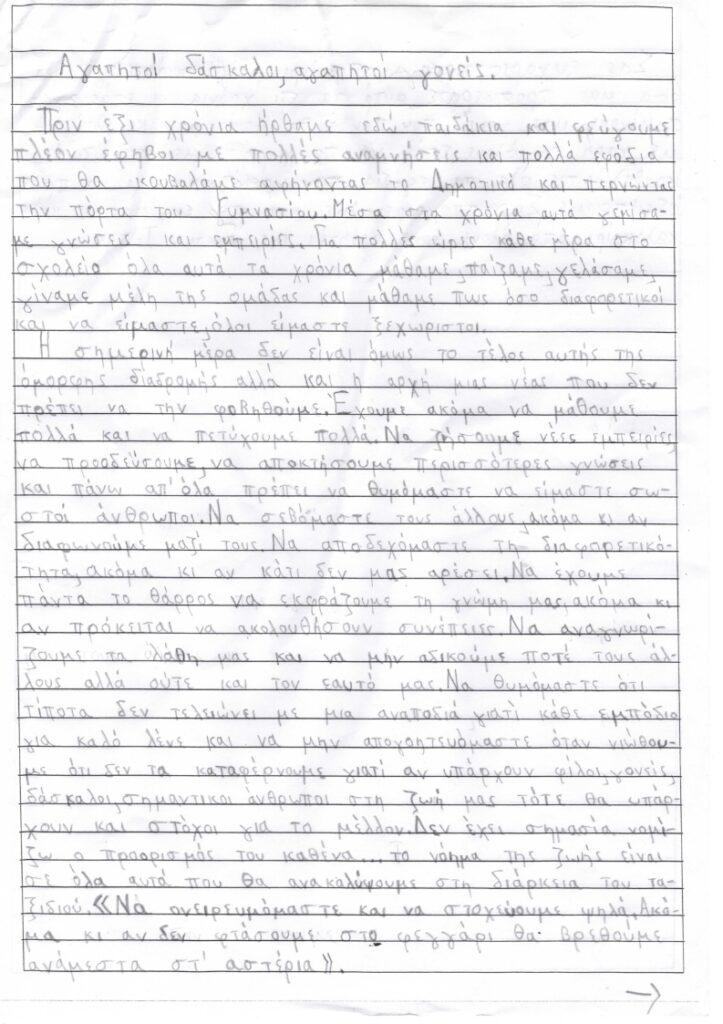 Αγαπητοί δάσκαλοι, αγαπητοί γονείς.
Πριν έξι χρόνια ήρθαμε εδώ παιδάκια και φεύγουμε
πλέον έφηβοι με πολλές αναμνήσεις και πολλά εφόδια
που θα κουβαλάμε αφήνοντας το Δημοτικό και περνώντας
την πόρτα του Γυμνασίου. Μέσα στα χρόνια αυτά γεμίσα-
με γνώσεις και εμπειρίες. Για πολλές ώρες κάθε μέρα στο
σχολείο όλα αυτά τα χρόνια μάθαμε, παίξαμε, γελάσαμε,
γίναμε μέλη της ομάδας και μάθαμε πως όσο διαφορετικοί
και να είμαστε, όλοι είμαστε ξεχωριστοι.
Η σημερινή μέρα δεν είναι όμως το τέλος αυτής της
όμορφης διαδρομής αλλά και η αρχή μιας νέας που δεν
πρέπει να την φοβηθούμε. Έχουμε ακόμα να μάθουμε
πολλά και να πετύχουμε πολλά. Να ζήσουμε νέες εμπειρίες,
να προοδεύσουμε, να αποκτήσουμε περισσότερες γνώσεις
και πάνω απ' όλα πρέπει να θυμόμαστε να είμαστε σω-
στοί άνθρωποι. Να σεβόμαστε τους άλλους, ακόμα κι αν
διαφωνούμε μαζί τους. Να αποδεχόμαστε τη διαφορετικό-
τητα, ακόμα κι αν κάτι δεν μας αρέσει. Να έχουμε
πάντα το θάρρος να εκφράζουμε τη γνώμη μας, ακόμα κι
αν πρόκειται να ακολουθήσουν συνέπειες. Να αναγνωρί-
ζουμε τα λάθη μας και να μην αδικούμε ποτέ τους άλ-
λους αλλά ούτε και τον εαυτό μας. Να θυμόμαστε ότι
τίποτα δεν τελειώνει με μια αναποδιά γιατί κάθε εμπόδιο
για καλό λένε και να μην απογοητευόμαστε όταν νιώθου-
με ότι δεν τα καταφέρνουμε γιατί αν υπάρχουν φίλοι, γονείς,
δάσκαλοι, σημαντικοι άνθρωποι στη ζωή μας τότε θα υπάρ-
χουν και στόχοι για το μέλλον. Δεν έχει σημασία νομί-
ζω ο προορισμός του καθένα... το νόημα της ζωής είναι
σε όλα αυτά που θα ανακαλύψουμε στη διάρκεια του τα-
ξιδιού. «Να ονειρευόμαστε και να στοχεύουμε ψηλά. Ακό-
μα κι αν δεν φτάσουμε στο φεγγάρι θα βρεθούμε
ανάμεσα στ' αστέρια».
→